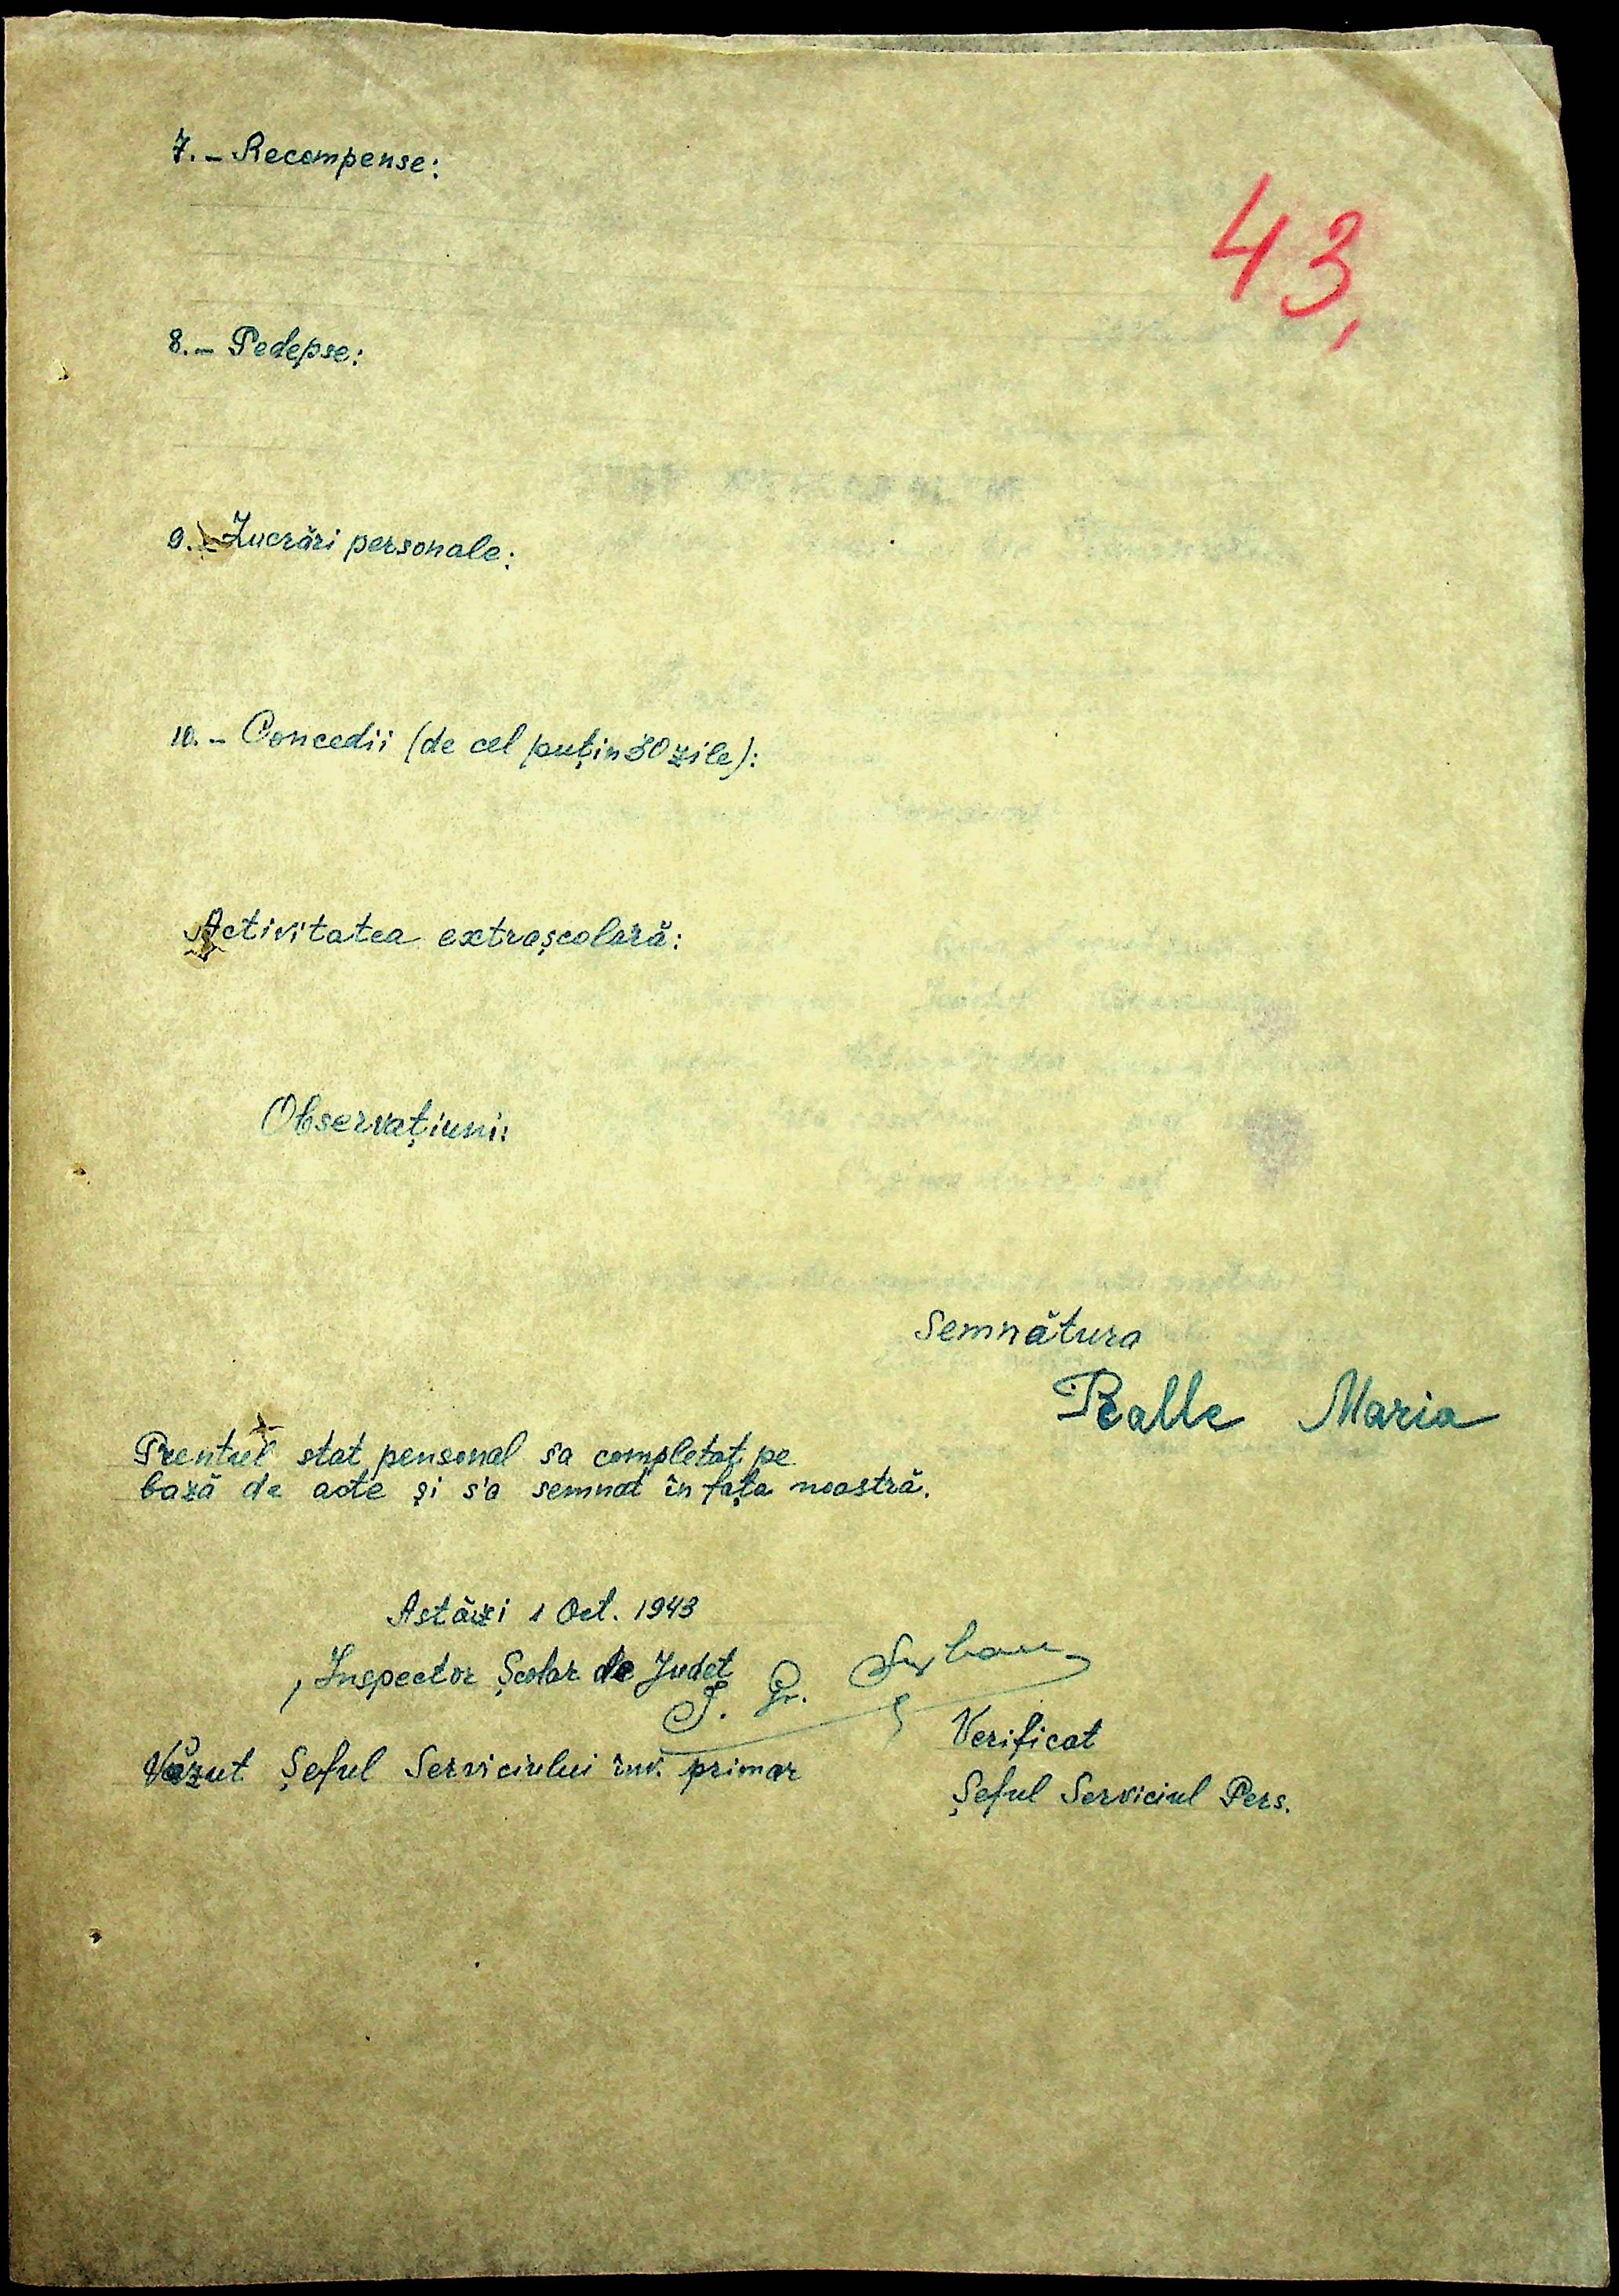 7. – Recompense:
43,
8. – Pedepse:
9. – Lucrări personale:
10. – Concedii (de cel puțin 30 zile):
Activitatea extrașcolară:
Observațiuni:
Semnătura
Ralle Maria
Prentul stat pensonal sa completat pe
bază de acte și s'a semnat în fața noastră.
Astăzi 1 Oct. 1943
Inspector Școlar de Județ
Verificat
Văzut Șeful Serviciului înv. primar
Șeful Serviciul Pers.